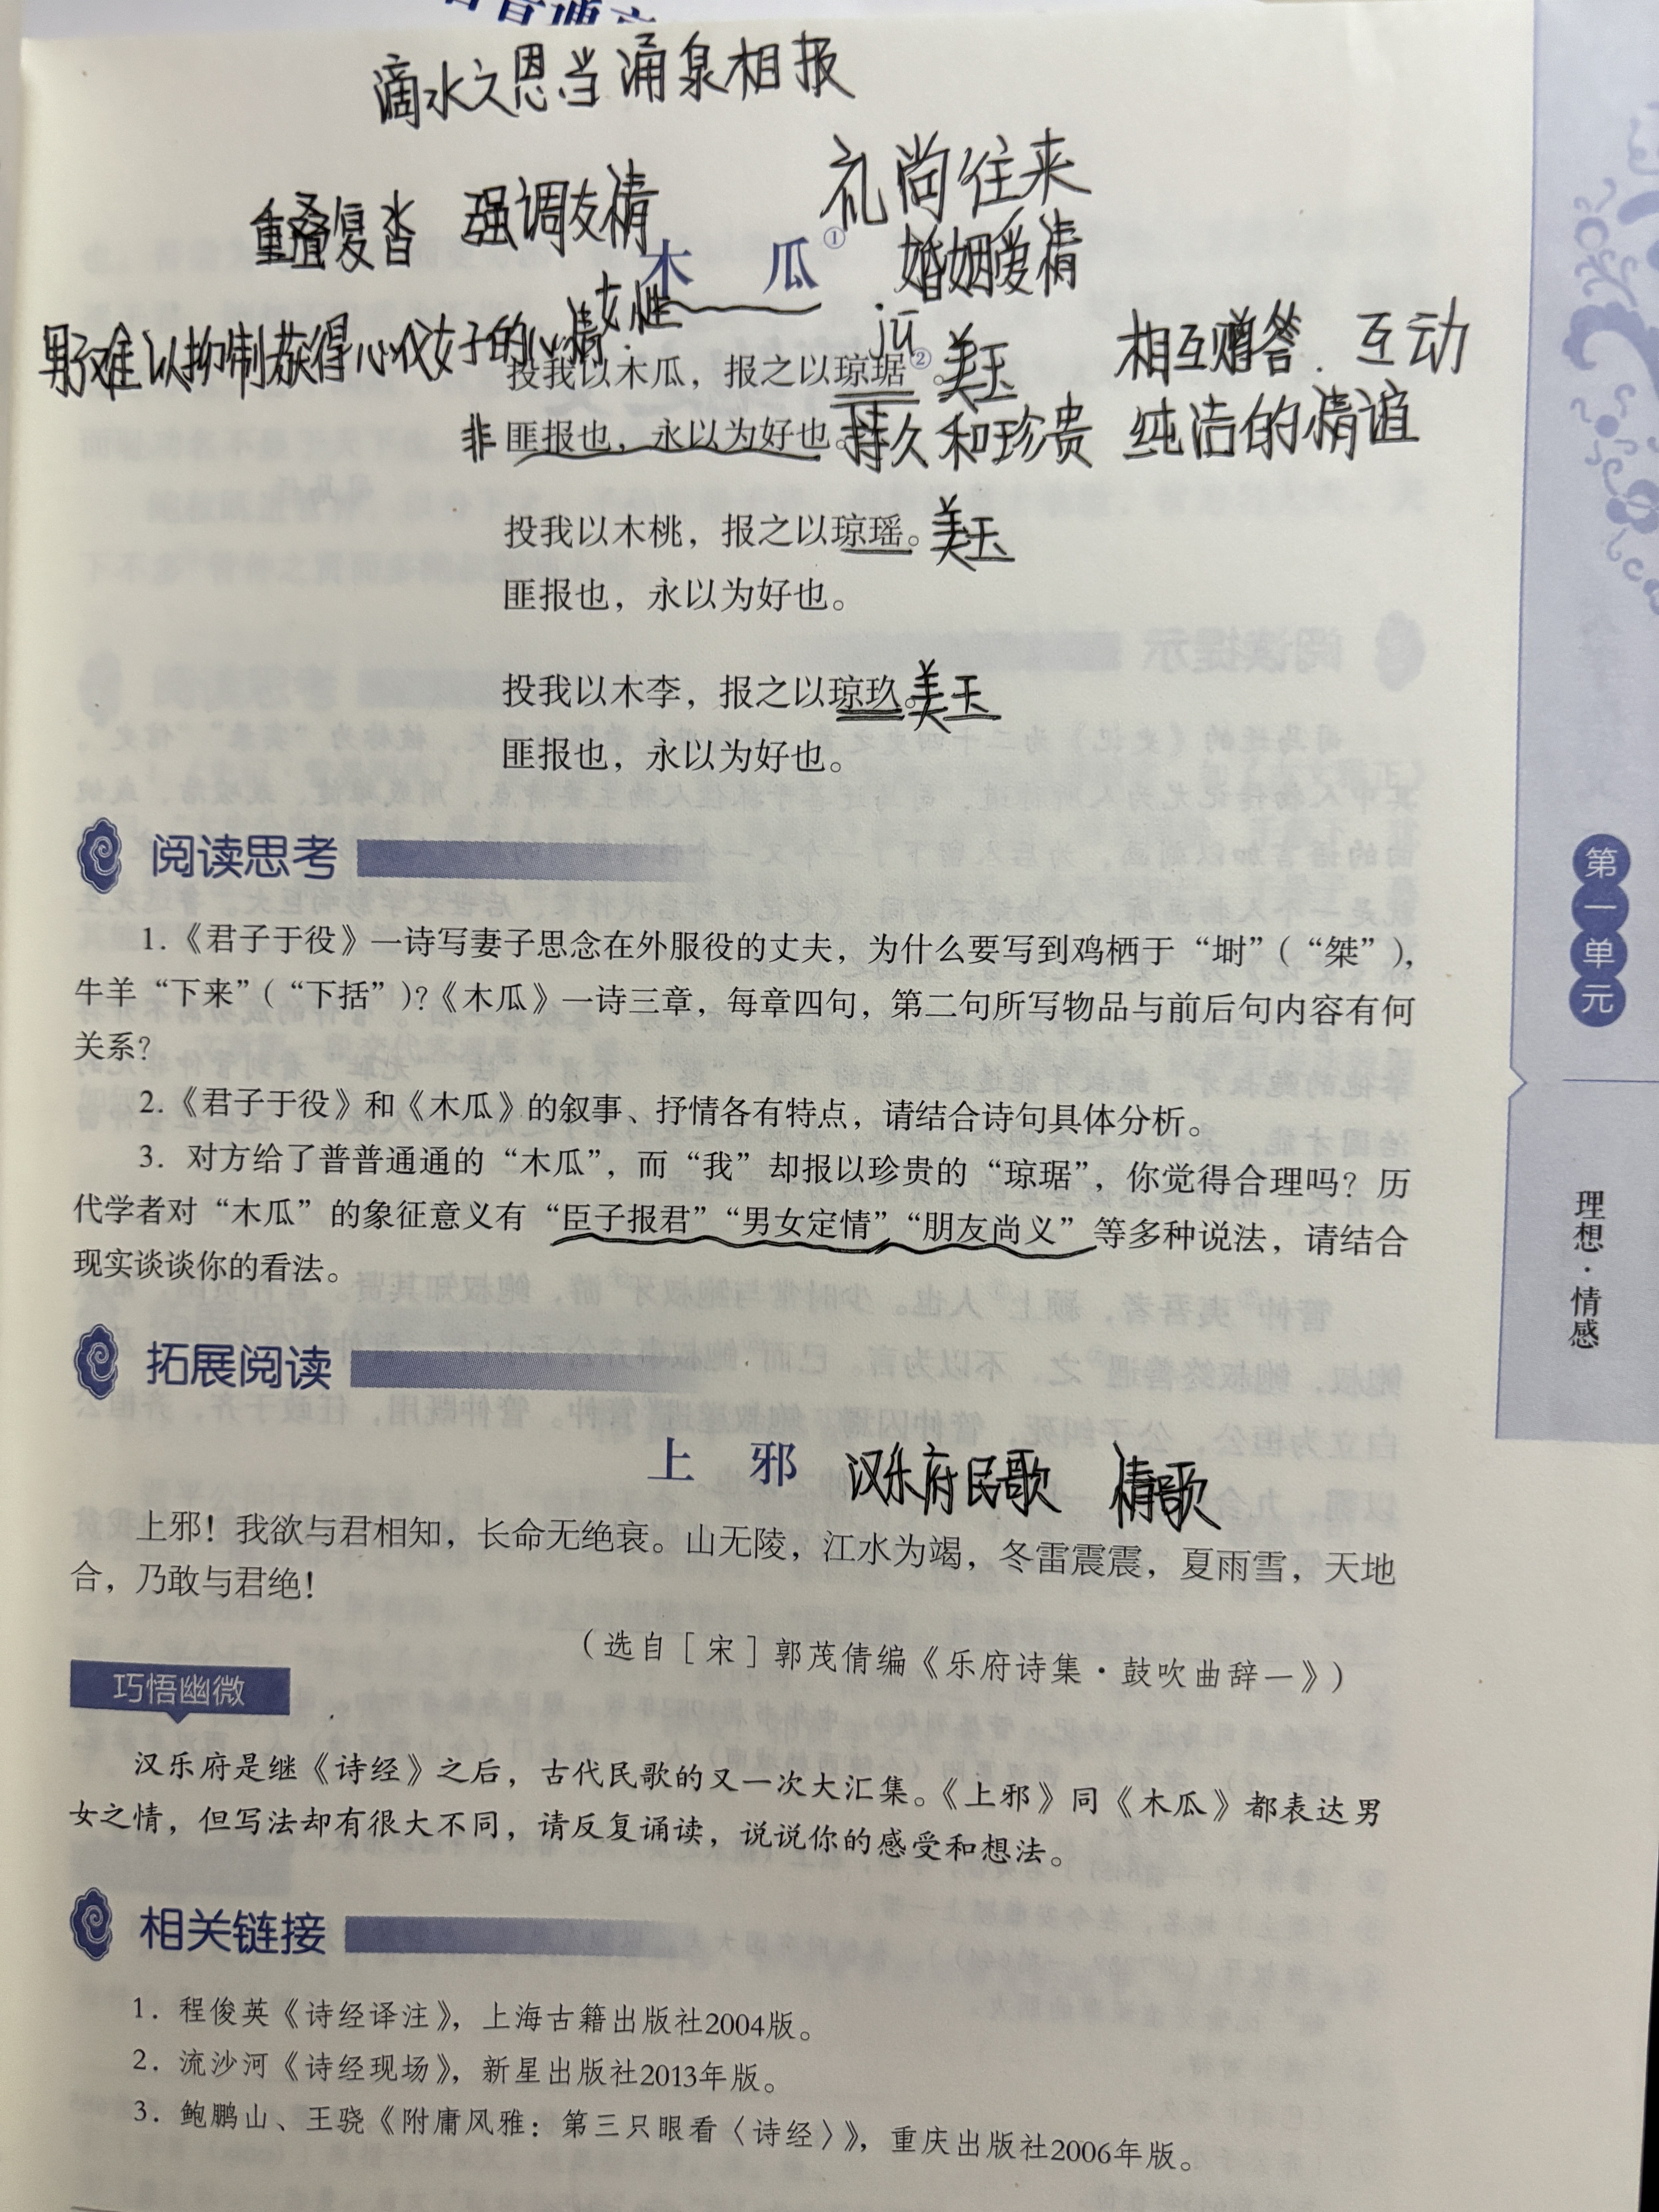 滴水之恩当涌泉相报
礼尚住来
重叠复沓 强调友情
木 瓜① 婚姻爱情
女性
男子难以抑制获得心仪女子的心情.
jū
投我以木瓜，报之以琼琚②。美玉 相互赠答. 互动
非 匪报也，永以为好也。持久和珍贵 纯洁的情谊
投我以木桃，报之以琼瑶。美玉
匪报也，永以为好也。
投我以木李，报之以琼玖。美玉
匪报也，永以为好也。
阅读思考
1.《君子于役》一诗写妻子思念在外服役的丈夫，为什么要写到鸡栖于“埘”（“桀”），
牛羊“下来”（“下括”）?《木瓜》一诗三章，每章四句，第二句所写物品与前后句内容有何
关系?
2.《君子于役》和《木瓜》的叙事、抒情各有特点，请结合诗句具体分析。
3. 对方给了普普通通的“木瓜”，而“我”却报以珍贵的“琼琚”，你觉得合理吗? 历
代学者对“木瓜”的象征意义有“臣子报君”“男女定情”“朋友尚义”等多种说法，请结合
现实谈谈你的看法。
拓展阅读
上 邪 汉乐府民歌 情歌
上邪！我欲与君相知，长命无绝衰。山无陵，江水为竭，冬雷震震，夏雨雪，天地
合，乃敢与君绝！
（选自［宋］郭茂倩编《乐府诗集·鼓吹曲辞一》）
巧悟幽微
汉乐府是继《诗经》之后，古代民歌的又一次大汇集。《上邪》同《木瓜》都表达男
女之情，但写法却有很大不同，请反复诵读，说说你的感受和想法。
相关链接
1. 程俊英《诗经译注》，上海古籍出版社2004版。
2. 流沙河《诗经现场》，新星出版社2013年版。
3. 鲍鹏山、王骁《附庸风雅：第三只眼看〈诗经〉》，重庆出版社2006年版。
第一单元
理想·情感